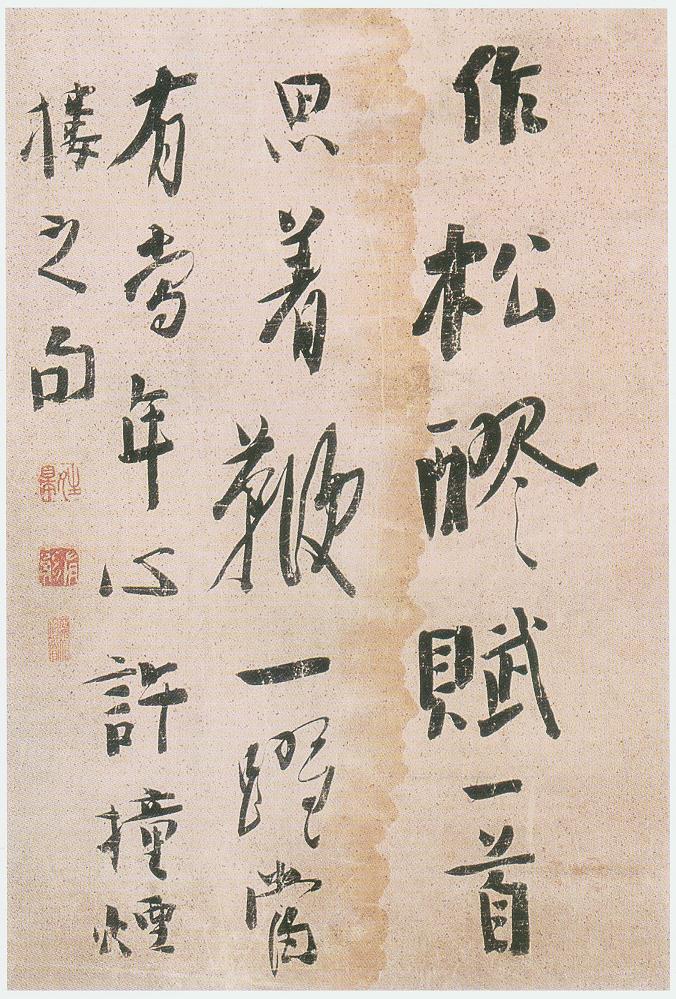 作松醪賦一首
思着鞭一躍當
有當年心許撞煙
樓之句